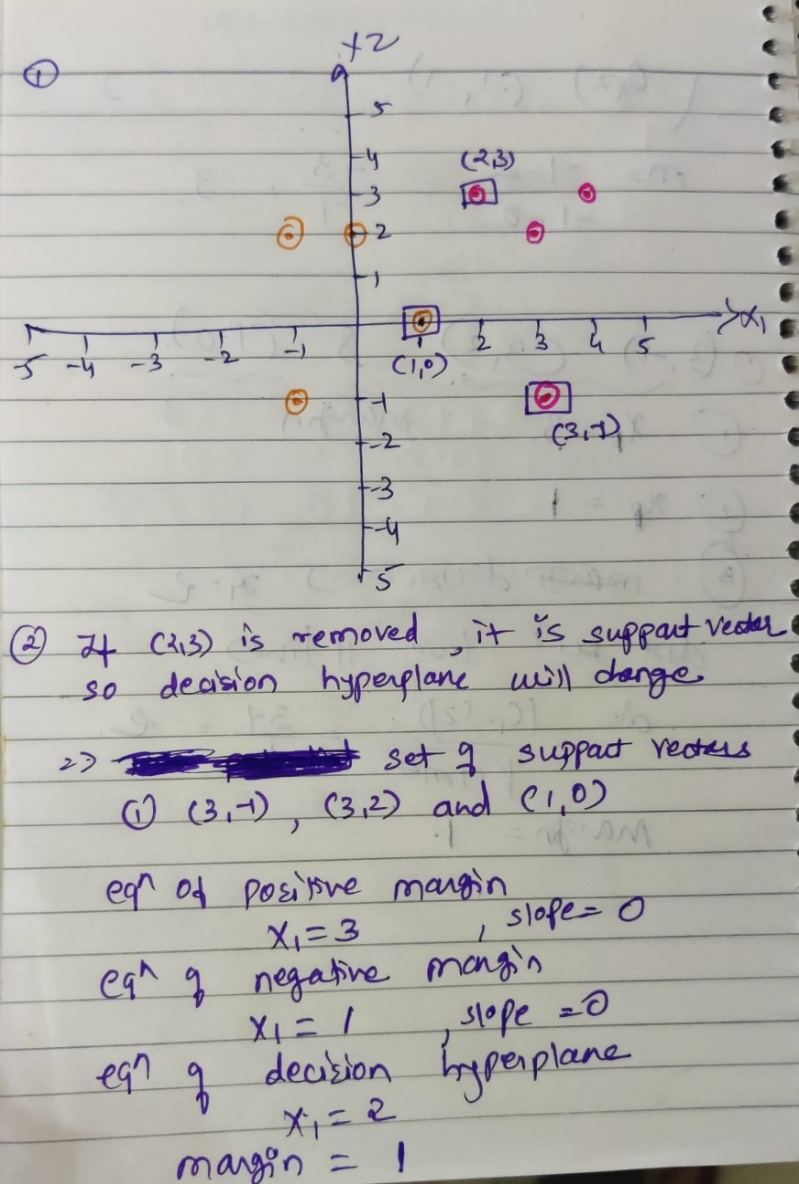 ①
x2
5
4 (2,3)
3
2
1
x₁
-5 -4 -3 -2 -1 1 2 3 4 5
(1,0)
-1
(3,-1)
-2
-3
-4
5
② If (2,3) is removed, it is support vector
so decision hyperplane will change
=> set of support vectors
① (3,-1), (3,2) and (1,0)
eqn of positive margin
x₁ = 3 , slope = 0
eqn of negative margin
x₁ = 1 , slope = 0
eqn of decision hyperplane
x₁ = 2
margin = 1